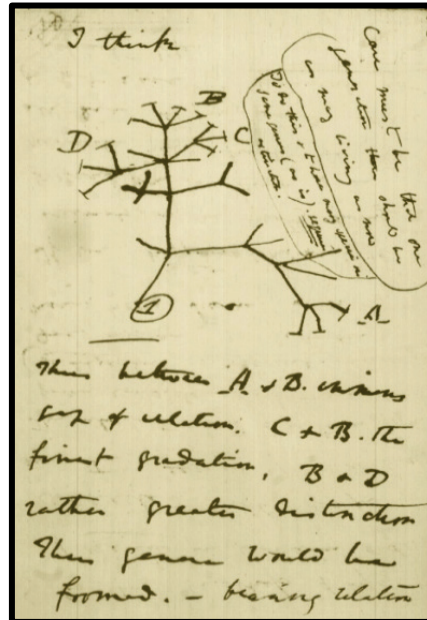 I think
Case must be that one
generation then should be
as many living as now
To do this & to have many species in
same genus (as is). requires
extinction.
B
D
C
1
A
Thus between A & B. immense
gap of relation. C & B. the
finest gradation, B & D
rather greater distinction
Thus genera would be
formed. — bearing relation